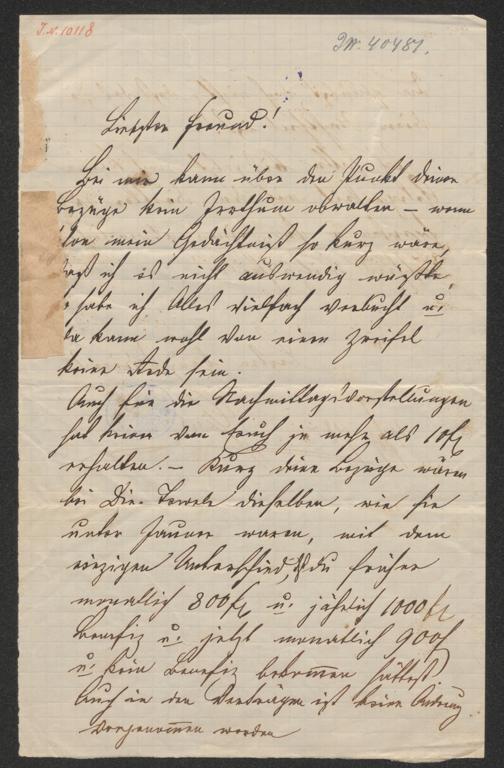 I. N. 10118
IN. 40481.
Liebster Freund!
Bei mir kann über den Punkt deiner
Bezüge kein Irrthum obwalten – wenn
mein Gedächtniß so kurz wäre,
daß ich es nicht auswendig wüßte,
habe ich Alles vielfach verbucht u.
da kann wohl von einem Zweifel
keine Rede sein.
Auch für die Nachmittagsvorstellungen
hat keiner von Euch je mehr als 10 fl
erhalten. – Kurz deine Bezüge wären
bei Dir. dieselben, wie sie
unter Jauner waren, mit dem
einzigen Unterschied, du früher
monatlich 800 fl u. jährlich 1000 fl
Benefiz u. jetzt monatlich 900 fl
u. kein Benefiz bekommen hättest.
Auch in den Verträgen ist keine Änderung
vorgenommen worden